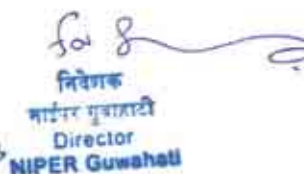 for
निदेशक
नाईपर गुवाहाटी
Director
NIPER Guwahati